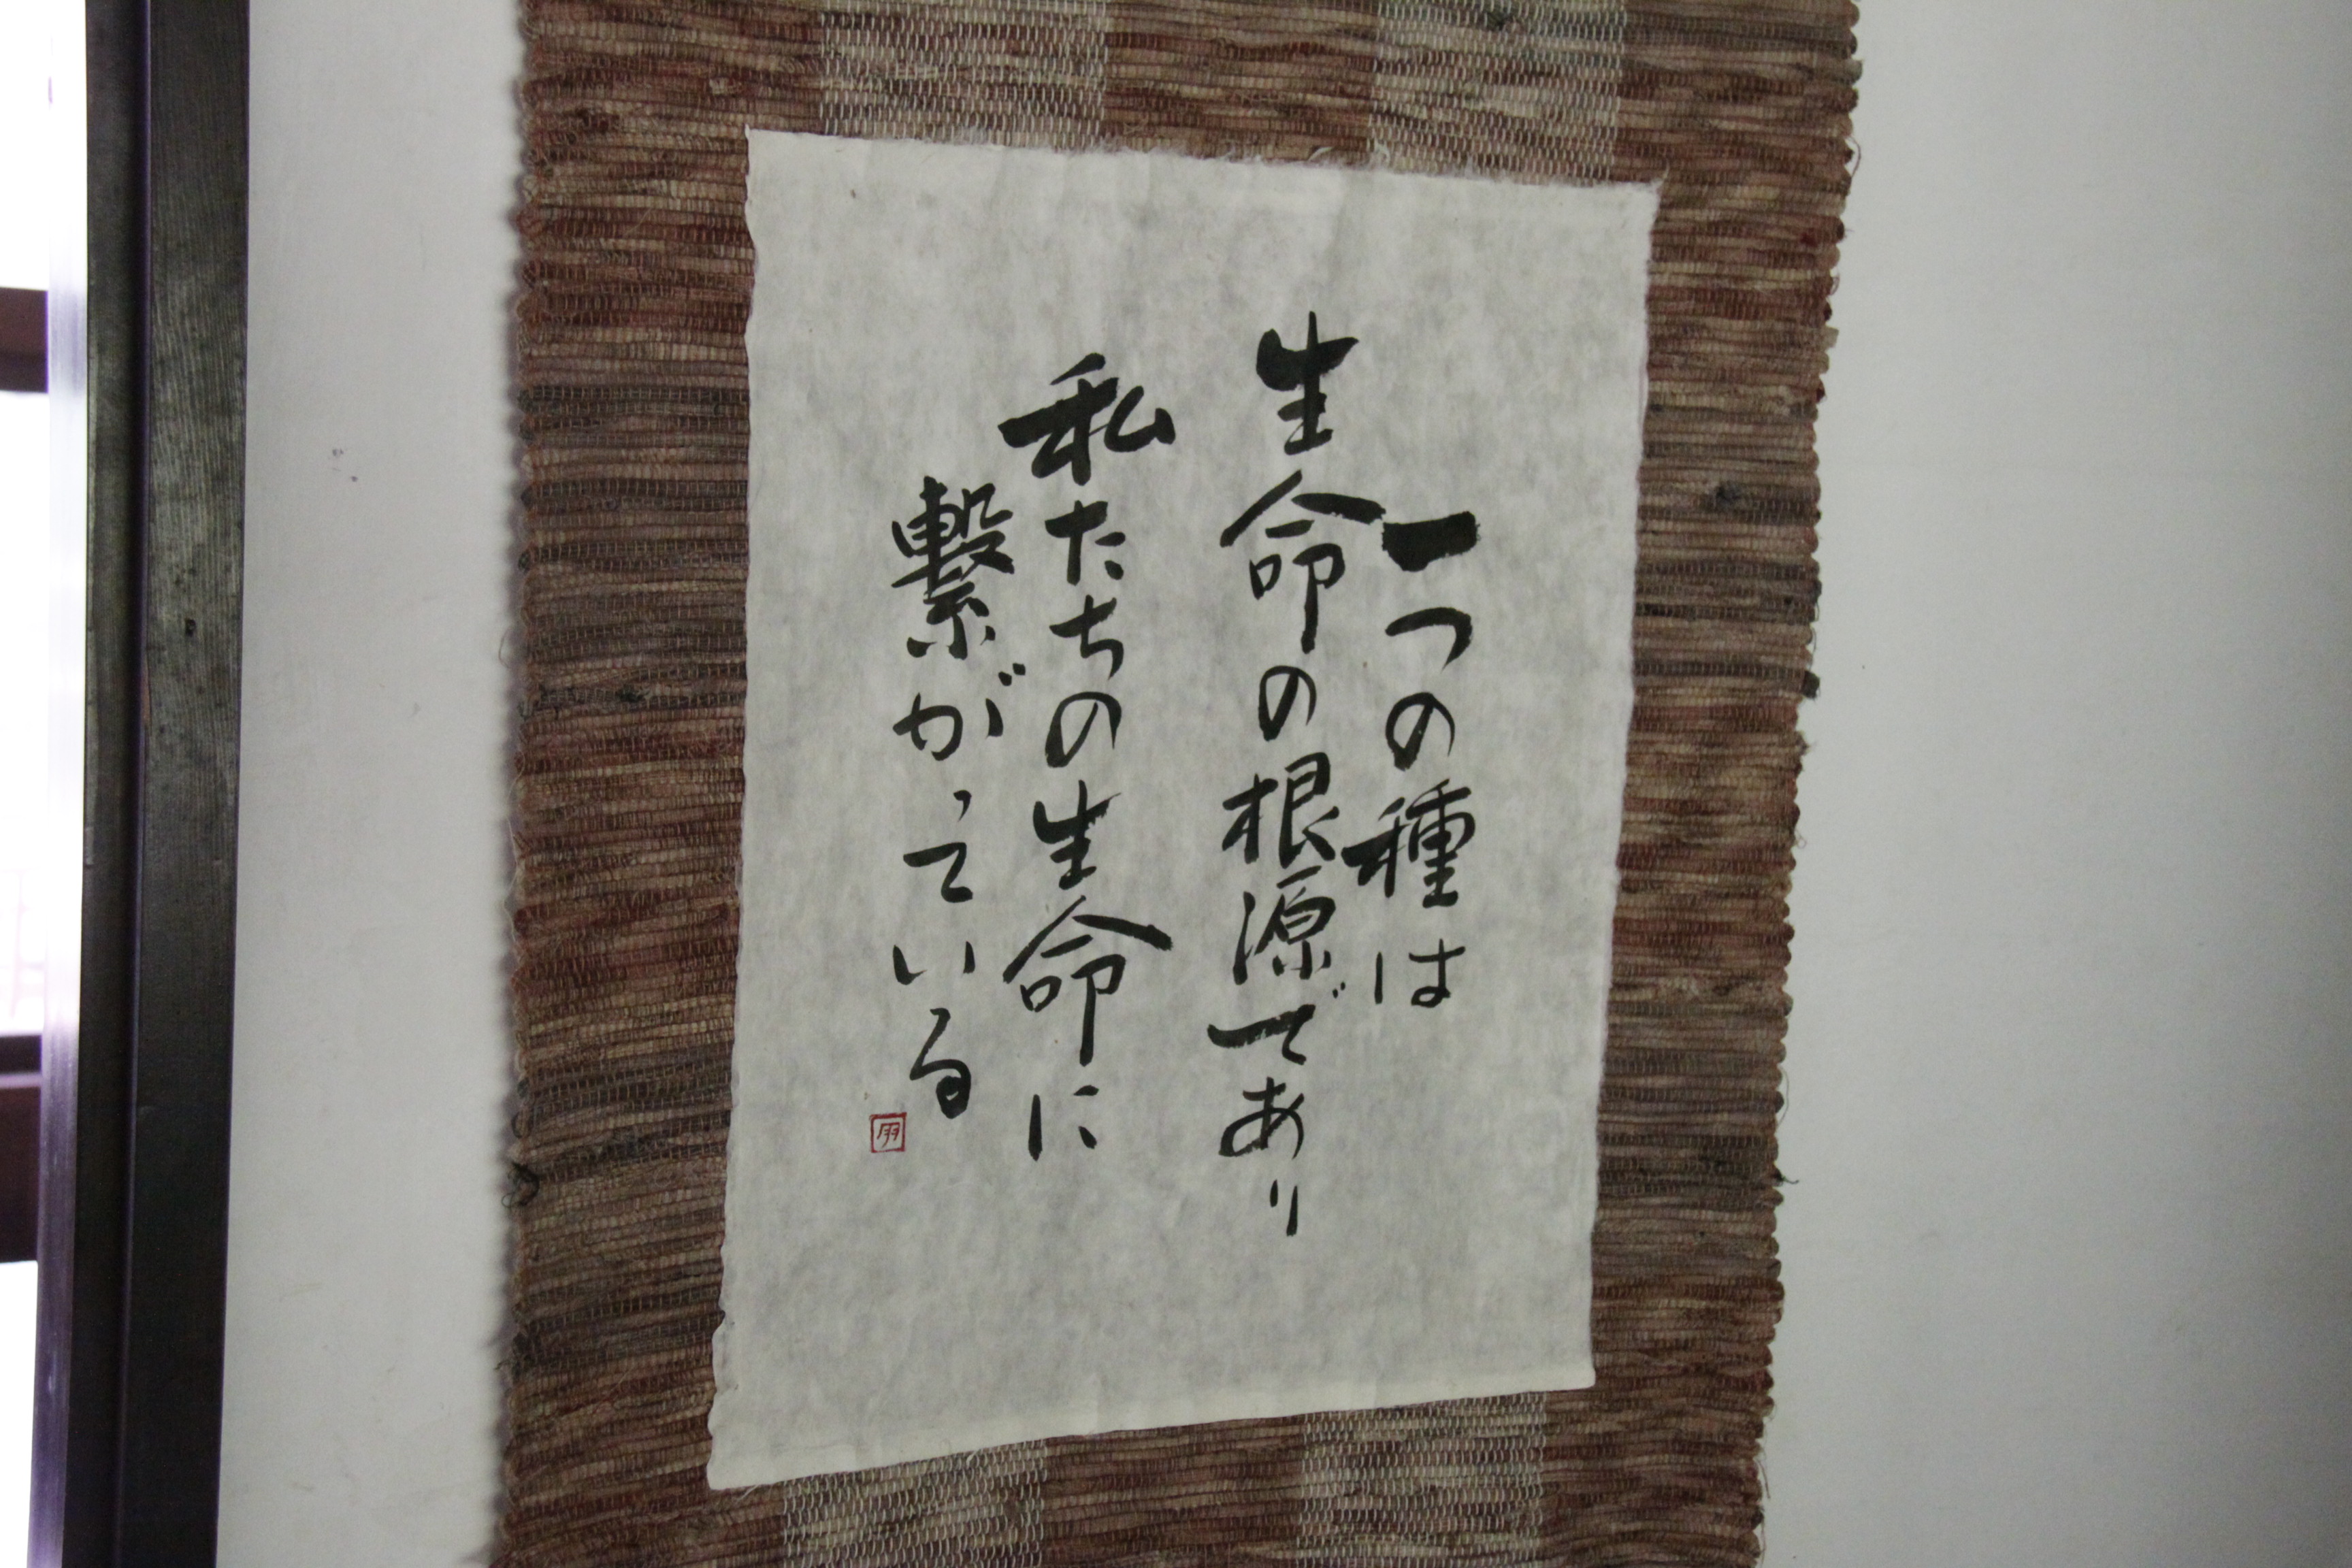 一つの種は
生命の根源であり
私たちの生命に
繋がっている